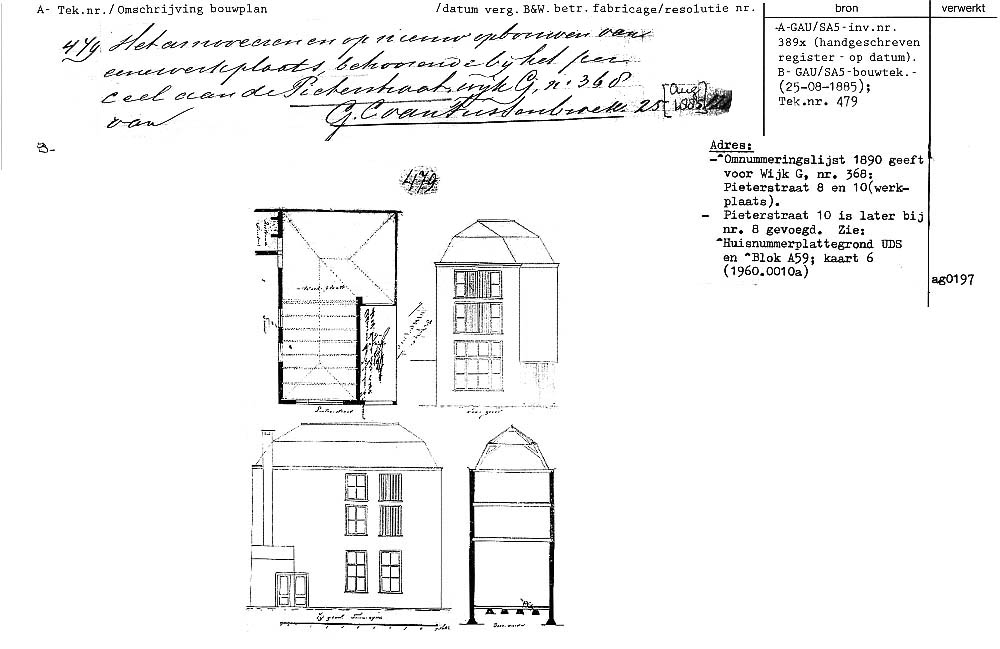 A- Tek.nr./Omschrijving bouwplan /datum verg. B&W. betr. fabricage/resolutie nr. bron verwerkt
479. Het amoveeren en op nieuw opbouwen van
eene werkplaats, behoorende bij het per
ceel aan de Pieterstraat wijk G, no. 368
van G. C. van 25 [Aug] 1885
-A-GAU/SA5-inv.nr.
389x (handgeschreven
register - op datum).
B- GAU/SA5-bouwtek.-
(25-08-1885);
Tek.nr. 479
B-
479
Adres:
-^Omnummeringslijst 1890 geeft
voor Wijk G, nr. 368:
Pieterstraat 8 en 10(werk-
plaats).
- Pieterstraat 10 is later bij
nr. 8 gevoegd. Zie:
^Huisnummerplattegrond UDS
en ^Blok A59; kaart 6
(1960.0010a)
ag0197